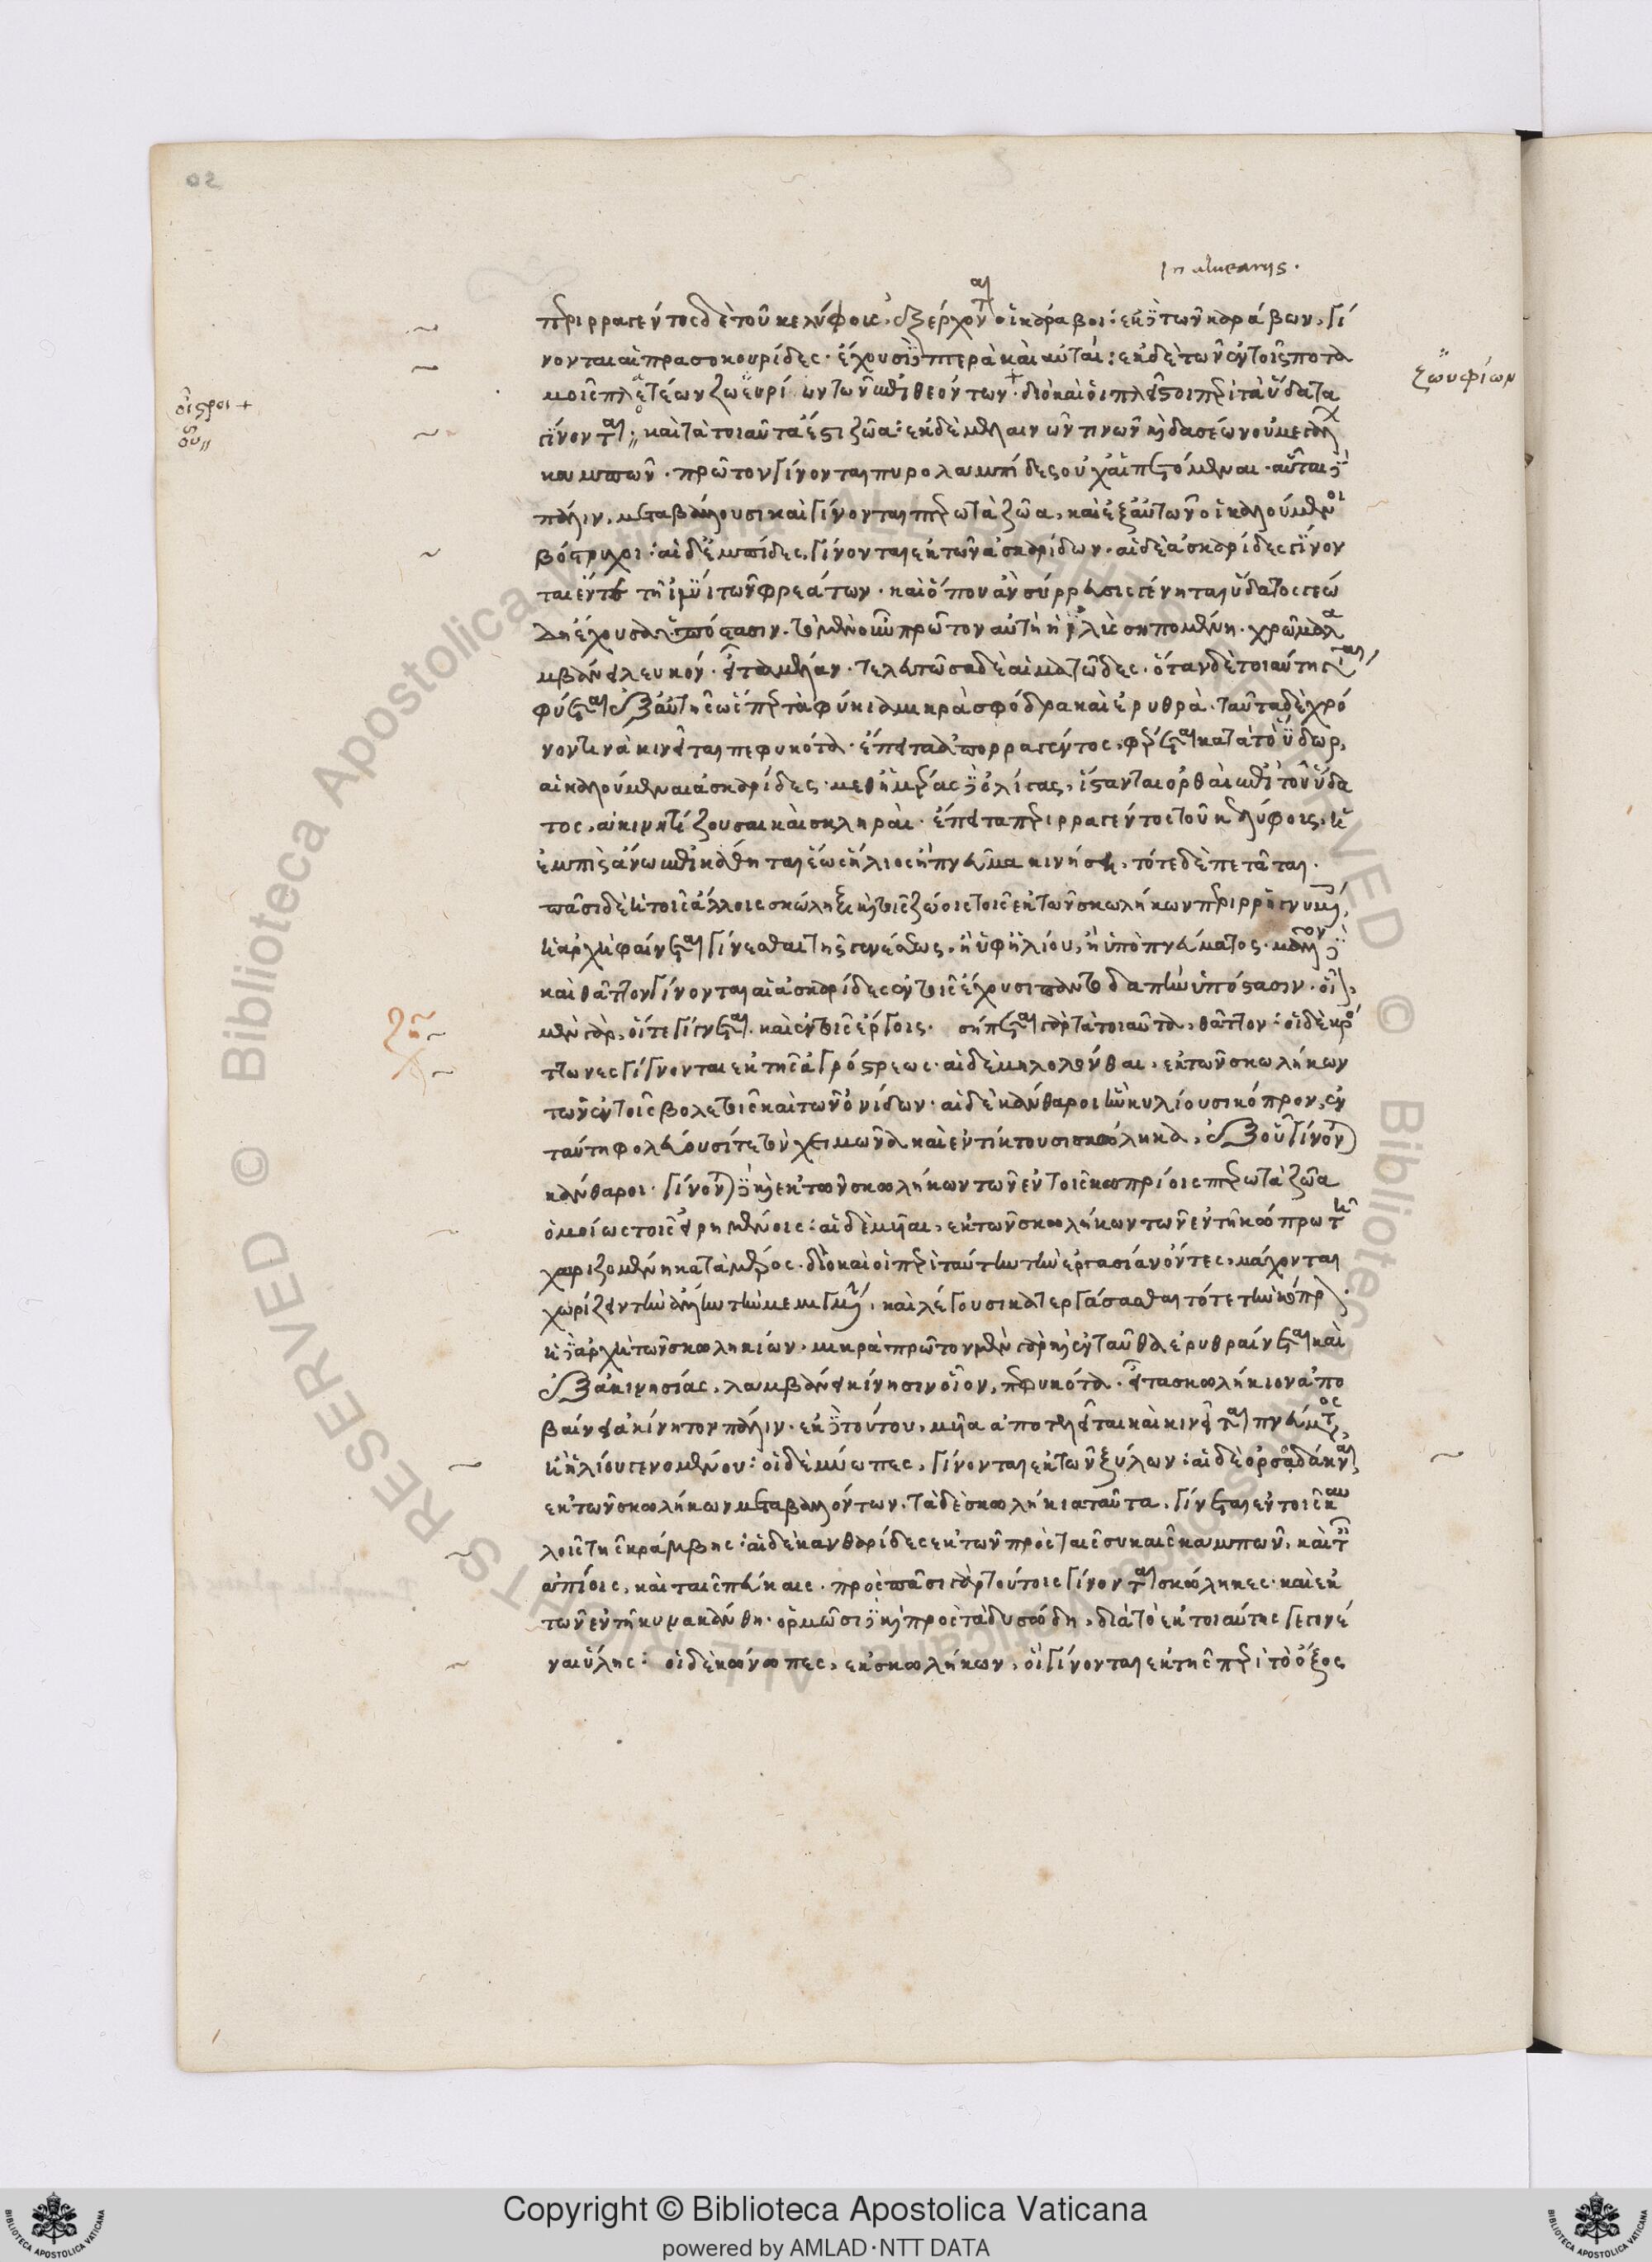 In alvearijs.
περιρραγέντος δὲ τοῦ κελύφους, ἐξέρχονται οἱ κάραβοι: ἐκ δὲ τῶν καράβων, γί
νονται αἱ πρασοκουρίδες. ἔχουσι δὲ πτερὰ καὶ αὗται: ἐκ δὲ τῶν ἐν τοῖς ποτα
μοῖς πλατέων ζω
των ἐπιθεόντων. διὸ καὶ οἱ πλεῖστοι περὶ τὰ ὕδατα
ζωυφίων
οἶστροι +
οὗ
γίνονται καὶ τὰ τοιαῦτά ἐστι ζῶα: ἐκ δὲ μελαινῶν τινῶν καὶ δασέων οὐ μεγάλων
καμπῶν. πρῶτον γίνονται πυρολαμπίδες οὐχ αἱ πετόμεναι. αὗται δὲ
πάλιν, μεταβάλλουσι καὶ γίνονται πτερωτὰ ζῶα, καὶ ἐξ αὐτῶν οἱ καλούμενοι
βόστρυχοι: αἱ δ' ἐμπίδες, γίνονται ἐκ τῶν ἀσκαρίδων. αἱ δὲ ἀσκαρίδες γίνον
ται ἔν τε τῇ ἰλύι τῶν φρεάτων. καὶ ὅπου ἂν σύρρευσις γένηται ὕδατος γεώ
δη ἔχουσα ὑπόστασιν. τὸ μὲν οὖν πρῶτον αὐτὴ ἡ ἰλὺς σηπομένη. χρῶμα λα
μβάνει λευκόν. εἶτα μέλαν. τελευτῶσα δὲ αἱματῶδες. ὅταν δὲ τοιαύτη γένηται,
φύεται ἐξ αὐτῆς ὥσπερ τὰ φύκια μικρὰ σφόδρα καὶ ἐρυθρά. ταῦτα δὲ χρό
νον τινὰ κινεῖται πεφυκότα. ἔπειτα ἀπορραγέντος, φέρεται κατὰ τὸ ὕδωρ,
αἱ καλούμεναι ἀσκαρίδες. μεθ' ἡμέρας δὲ ὀλίγας, ἵστανται ὀρθαὶ ἐπὶ τοῦ ὕδα
τος, ἀκινητίζουσαι καὶ σκληραί. ἔπειτα περιρραγέντος τοῦ κελύφους, ἡ
ἐμπὶς ἄνω ἐπικάθηται ἕως ἥλιος ἢ πνεῦμα κινήσῃ, τότε δὲ πέταται.
πᾶσι δὲ καὶ τοῖς ἄλλοις σκώληξι καὶ τοῖς ζώοις τοῖς ἐκ τῶν σκωλήκων περιρρηγνυμένοις,
ἡ ἀρχὴ φαίνεται γίνεσθαι τῆς γενέσεως, ἢ ὑφ' ἡλίου, ἢ ὑπὸ πνεύματος. μᾶλλον δὲ
καὶ θᾶττον γίνονται αἱ ἀσκαρίδες ἐν τοῖς ἔχουσι παντοδαπὴν ὑπόστασιν. οἷον
μὲν γὰρ, οἵ τε γίγνεται καὶ ἐν τοῖς ἔργοις. σήπεται γὰρ τὰ τοιαῦτα, θᾶττον: οἱ δὲ κρο
τωνες γίγνονται ἐκ τῆς ἀγρώστρεως. αἱ δὲ μηλολόνθαι, ἐκ τῶν σκωλήκων
τῶν ἐν τοῖς βολίτοις καὶ τῶν ὀνίδων. αἱ δὲ κάνθαροι ἣν κυλίουσι κόπρον, ἐν
ταύτῃ φολεύουσί τε τὸν χειμῶνα καὶ ἐντίκτουσι σκώληκα, ἐξ οὗ γίνονται
κάνθαροι. γίνονται δὲ καὶ ἐκ τῶν σκωλήκων τῶν ἐν τοῖς κοπρίοις πτερωτὰ ζῶα
ὁμοίως τοῖς εἰρημένοις: αἱ δὲ μυῖαι, ἐκ τῶν σκωλήκων τῶν ἐν τῇ κόπρῳ τῇ
χωριζομένῃ κατὰ μέρος. διὸ καὶ οἱ περὶ ταύτην τὴν ἐργασίαν ὄντες, μάχονται
χωρίζειν τὴν ἄλλην τὴν μεμιγμένην, καὶ λέγουσι κατεργάσασθαι τότε τὴν κόπρον.
ἡ δὲ ἀρχὴ τῶν σκωληκίων, μικρὰ πρῶτον μὲν γὰρ καὶ ἐνταῦθα ἐρυθραίνεται καὶ
ἐξ ἀκινησίας, λαμβάνει κίνησιν οἷον, πεφυκότα. εἶτα σκωλήκιον ἀπο
βαίνει ἀκίνητον πάλιν. ἐκ δὲ τούτου, μυῖα ἀποτελεῖται καὶ κινεῖται πνεύματος
ἢ ἡλίου γενομένου: οἱ δὲ μύωπες, γίνονται ἐκ τῶν ξύλων: αἱ δὲ ὀρσοδάκναι,
ἐκ τῶν σκωλήκων μεταβαλλόντων. τὰ δὲ σκωλήκια ταῦτα, γίνεται ἐν τοῖς καυ
λοῖς τῆς κράμβης: αἱ δὲ κανθαρίδες ἐκ τῶν πρὸς ταῖς συκαῖς καμπῶν, καὶ ταῖς
ἀπίοις, καὶ ταῖς πεύκαις. πρὸς πᾶσι γὰρ τούτοις γίνονται σκώληκες. καὶ ἐκ
τῶν ἐν τῇ κυνακάνθῃ. ὁρμῶσι δὲ καὶ πρὸς τὰ δυσώδη, διὰ τὸ ἐκ τοιαύτης γεγονέ
ναι ὕλης: οἱ δὲ κώνωπες, ἐκ σκωλήκων, οἳ γίνονται ἐκ τῆς περὶ τὸ ὄξος
Copyright © Biblioteca Apostolica Vaticana
powered by AMLAD·NTT DATA